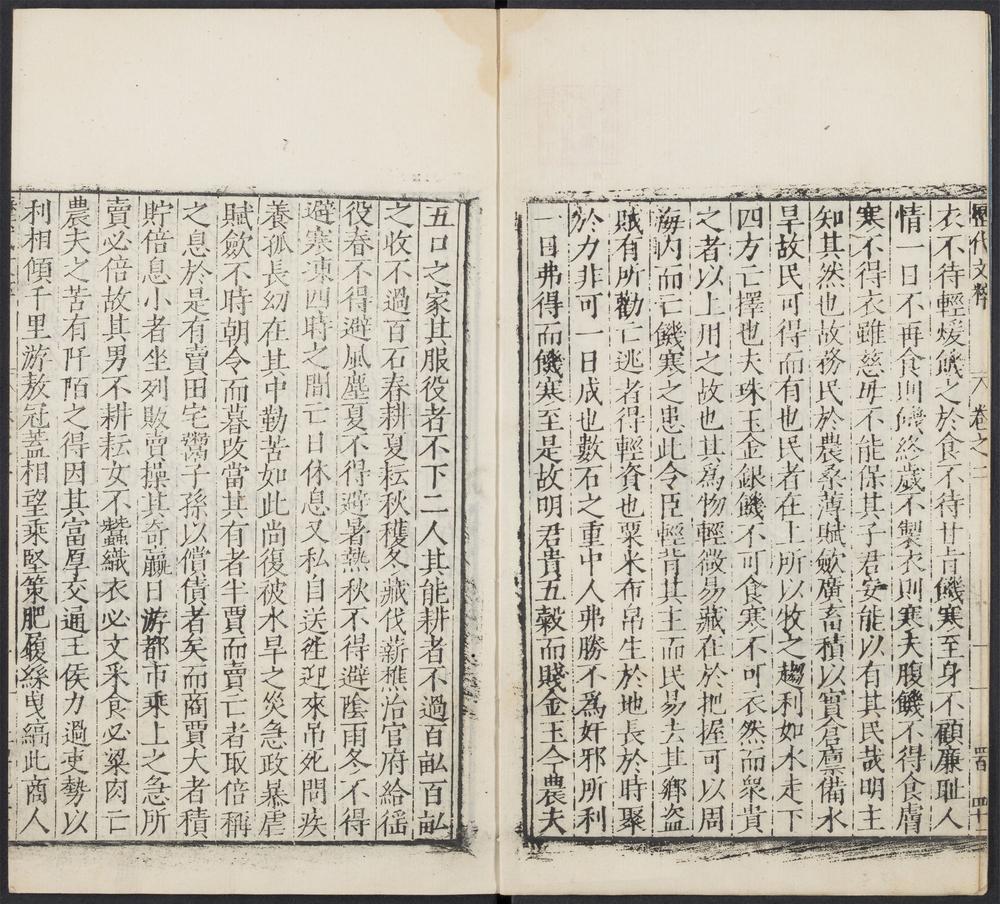 歷代文粹 八 卷之二 四十
衣不待輕煖饑之於食不待甘旨饑寒至身不顧廉耻人
情一日不再食則饑終歲不製衣則寒夫腹饑不得食膚
寒不得衣雖慈母不能保其子君安能以有其民哉明主
知其然也故務民於農桑薄賦歛廣畜積以實倉廩備水
旱故民可得而有也民者在上所以牧之趨利如水走下
四方亡擇也夫珠玉金銀饑不可食寒不可衣然而衆貴
之者以上用之故也其爲物輕微易藏在於把握可以周
海内而亡饑寒之患此令臣輕背其主而民易去其鄉盜
賊有所勸亡逃者得輕資也粟米布帛生於地長於時聚
於力非可一日成也數石之重中人弗勝不爲奸邪所利
一日弗得而饑寒至是故明君貴五穀而賤金玉今農夫
五口之家其服役者不下二人其能耕者不過百畝百畝
之收不過百石春耕夏耘秋穫冬藏伐薪樵治官府給徭
役春不得避風塵夏不得避暑熱秋不得避陰雨冬不得
避寒凍四時之間亡日休息又私自送徃迎來吊死問疾
養孤長幼在其中勤苦如此尚復被水旱之災急政暴虐
賦歛不時朝令而暮改當其有者半賈而賣亡者取倍稱
之息於是有賣田宅鬻子孫以償債者矣而商賈大者積
貯倍息小者坐列販賣操其奇贏日游都市乘上之急所
賣必倍故其男不耕耘女不蠶織衣必文采食必粱肉亡
農夫之苦有阡陌之得因其富厚交通王侯力過吏勢以
利相傾千里游敖冠蓋相望乘堅策肥履絲曳縞此商人